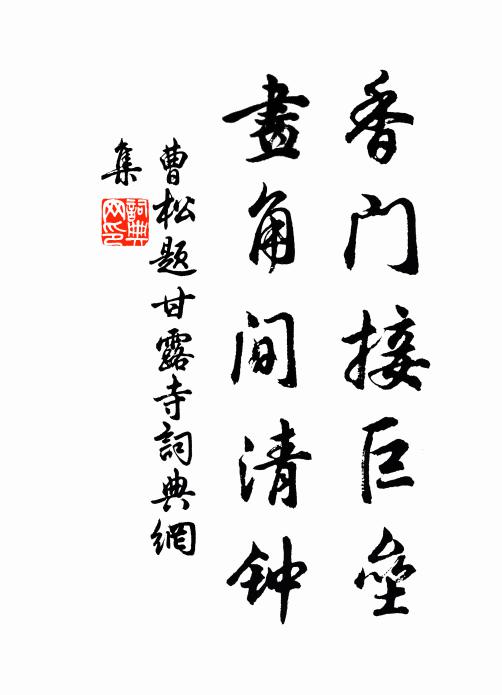 香门接巨壘
畫角间清钟
曹松题甘露寺詞典網
集
詞典
网印